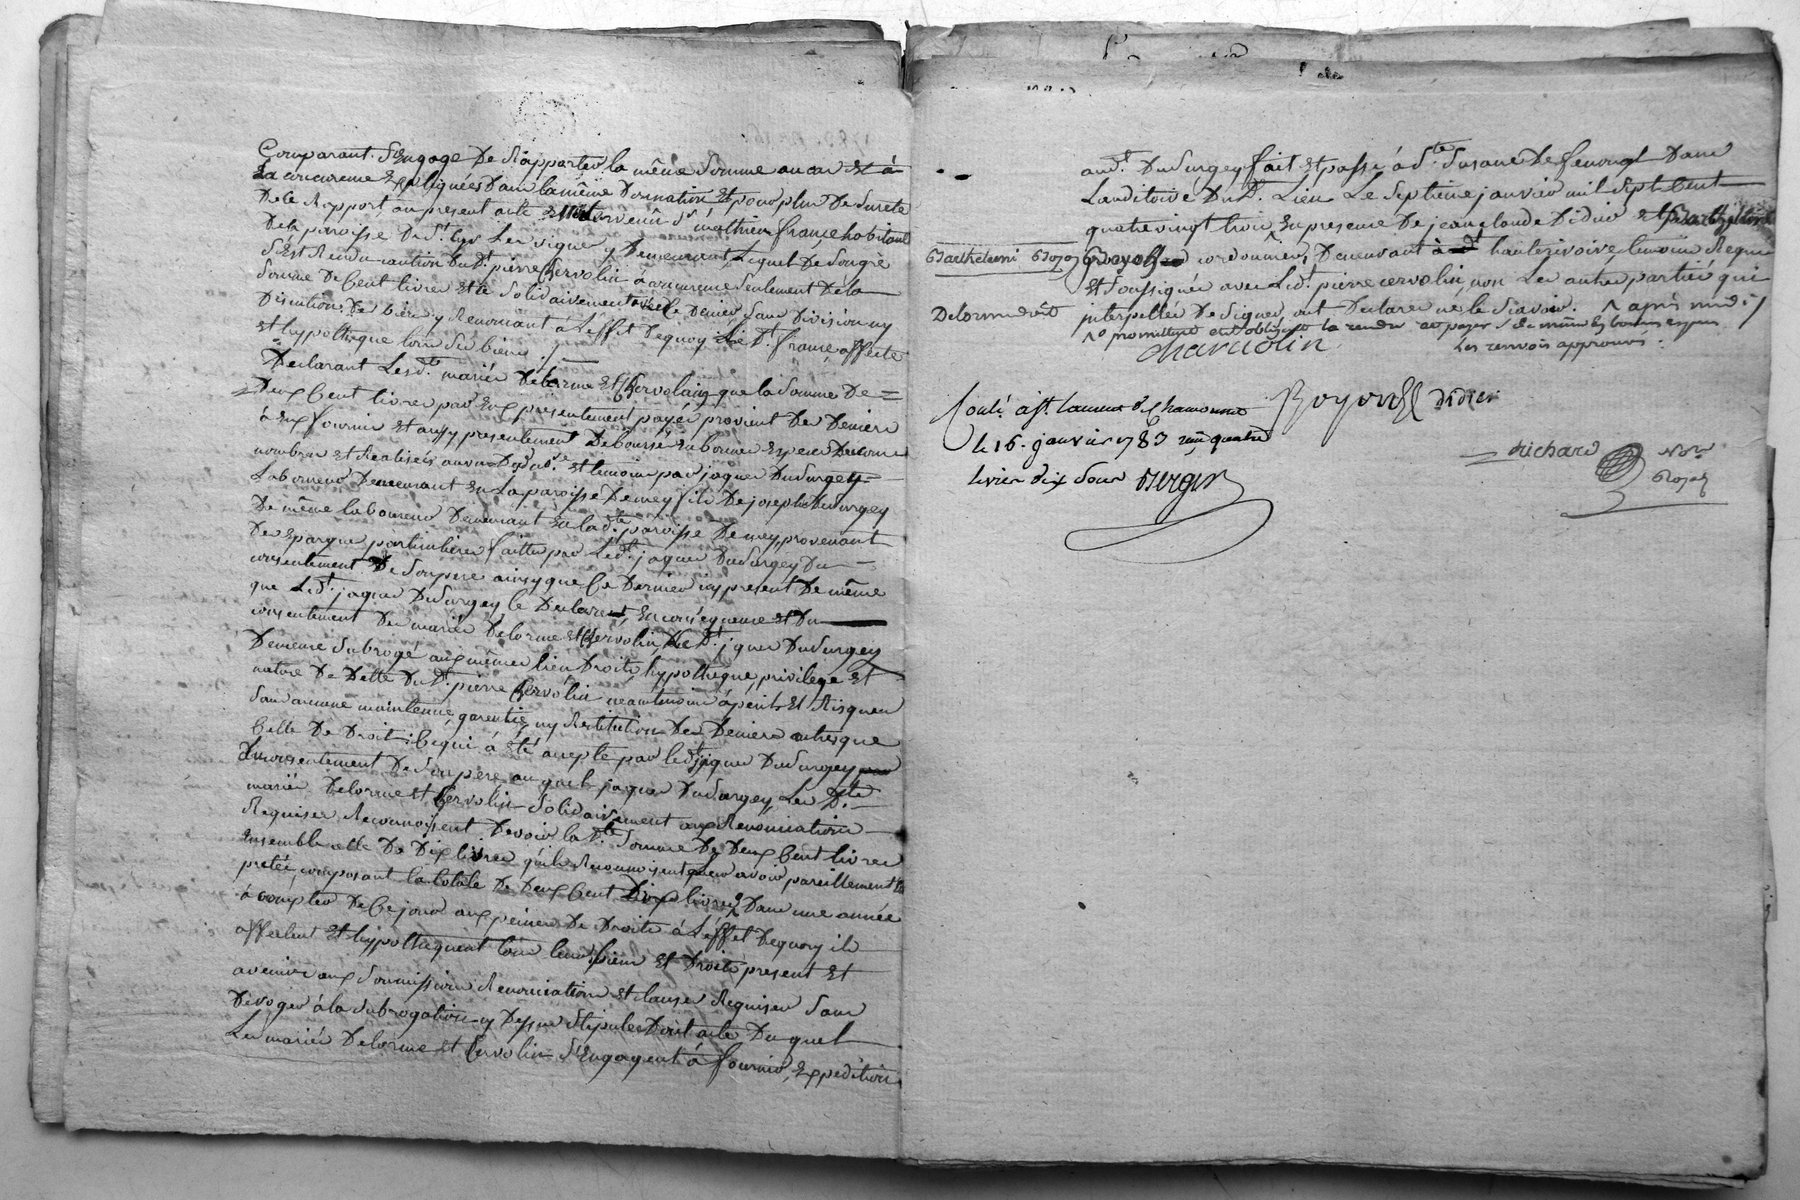 Comparant s'Engage De Rapporter la même somme au cas Et à
La concurrence Expliquée Dans la même Donnation Et pour plus De sureté
De le Rapport au present acte Est intervenû Sr mathieu france habitant
De la paroisse De St. Cyr Les vigne y Demeurant, Lequel De son gré
s'Est Rendu caution Dudt. pierre Chervolin à concurrence seulement De la
somme De Cent livres et solidairement avec le Dernier, sans Division ny
Discution De bien y Renonçant à L'effet Dequoy Ledt. france affecte
et hypotheque tous ses biens ./.
Declarant Lesdt. mariés Delorme Et Chervolin que la somme De
Deux Cent livres par Eux presentement payée provient De Deniers
à Eux fournis Et aussy presentement Deboursés en bonnes Especes Decours
nombrée et Realisée au vu Du Nre. et temoins par jaque Dusurgey
Laboureur Demeurant En La paroisse De mey fils De joseph Dusurgey
De même laboureur Demeurant En ladte. paroisse De mey, provenant
De Epargnes particulieres faittes par Ledt. jaque Dusurgey Du
consentement De son pere ainsy que Ce Dernier icy present De même
que Ledt. jaque Dusurgey le Declarent, En consequence et Du
consentement Des mariés Delorme Et Chervolin, Ledt. jaque Dusurgey
Demeure subrogé aux mêmes lieu Droits, hypotheque, privilege Et
nature De Dette Dudt. pierre Chervolin neantmoins à perils Et Risques
sans aucune maintenue, garentie, ny Restitution De Deniers autres que
Celle De Droit: Ce qui à été accepté par ledt. jaque Dusurgey
Du consentement De son pere au quel jaque Dusurgey, Les Dts.
mariés Delorme et Chervolin solidairement aux Renonciations
Requises Reconnoissent Devoir la dte. somme De Deux Cent livres
Ensemble celle De Dix livres qu'ils Reconnoissent leur avoir pareillement été
pretée, composant la totale De Deux Cent Dix livres Dans une année
à compter De Ce jour aux peines De Droits à L'effet Dequoy ils
affectent Et hypothequent tous leurs biens Et Droits present Et
avenirs aux soumissions Renonciations Et clauses Requises sans
Deroger à la subrogation cy Dessus stipulée Dont acte Duquel
Les mariés Delorme et Chervolin s'Engagent à fournir, Expedition
audt. Dusurgey fait Et passé à Ste. susane De fenoyl Dans
L'auditoire Dudt. Lieu Le sept‌ieme janvier mil sept Cent
quatre vingt trois, En presence De jean claude Didier et Barthelemi
Barthelemi Royoz
cordonniers Demeurant à hauterivoire, temoins Requis
Et soussignés avec Ledt. pierre cervolin, non Les autres parties qui
Delorme Doit
interpellés De signer, ont Declaré ne le sçavoir. ^ apres midi /
promettent et s'obligent la rendre et payer
Les renvois approuvés :
charvolin
Royon Didier
Conlé. à St. Laurent de Chamousset
le 16. janvier 1783 reçu quatre
livres dix sous
richard
Nre
Royal